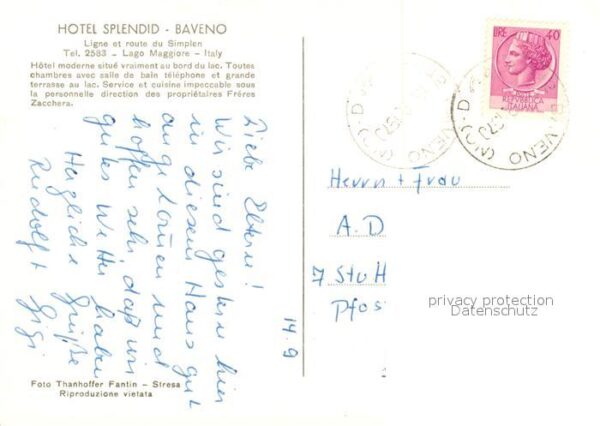 HOTEL SPLENDID - BAVENO
Ligne et route du Simplon
Tel. 2583 – Lago Maggiore – Italy
Hôtel moderne situé vraiment au bord du lac. Toutes
chambres avec salle de bain téléphone et grande
terrasse au lac. Service et cuisine impeccable sous
la personnelle direction des propriétaires Fréres
Zacchera.
Liebe Eltern!
Wir sind gestern hier
in diesem Haus gut
angekommen und
hoffen sehr, daß wir
gutes Wetter haben
Herzliche Grüße
Rudolf + Gigi
14.9
Foto Thanhoffer Fantin – Stresa
Riproduzione vietata
LIRE 40
POSTE
REPVBBLICA
ITALIANA
BAVENO (NO)
Herrn + Frau
A. D
7 Stutt
Pfos
privacy protection
Datenschutz